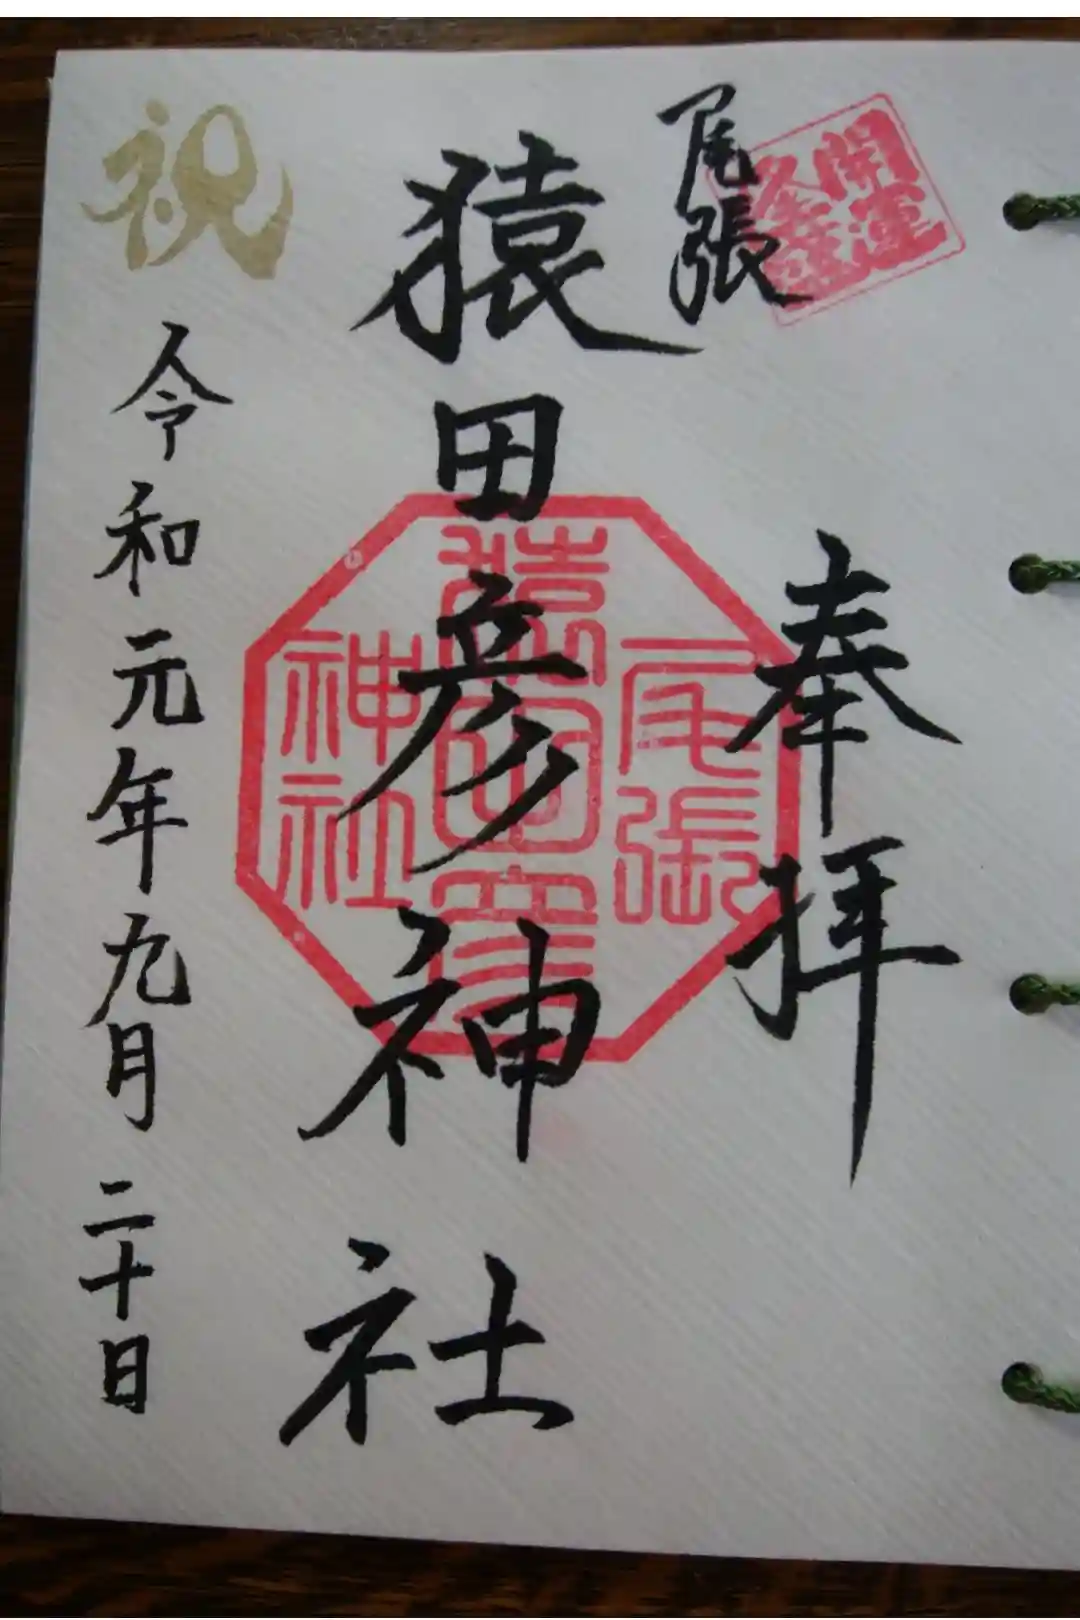 開運
尾張
奉拝
猿田彦神社
尾張
猿田彦
神社
祝
令和元年九月二十日